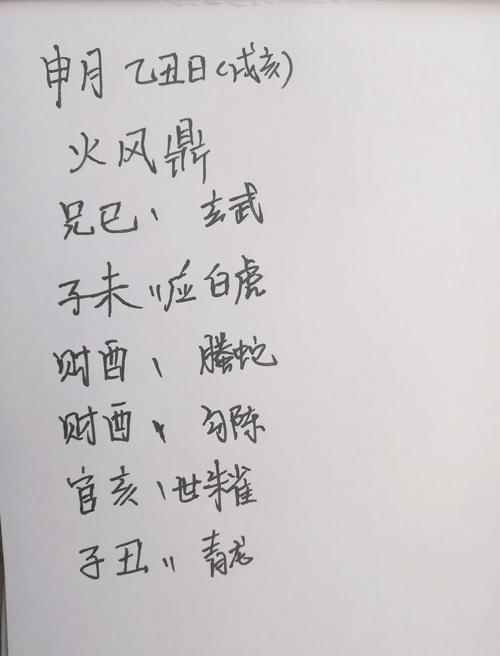 申月 乙丑日(戌亥)
火风鼎
兄巳、 玄武
子未〃应白虎
财酉、 螣蛇
财酉、 勾陈
官亥、世朱雀
子丑〃 青龙